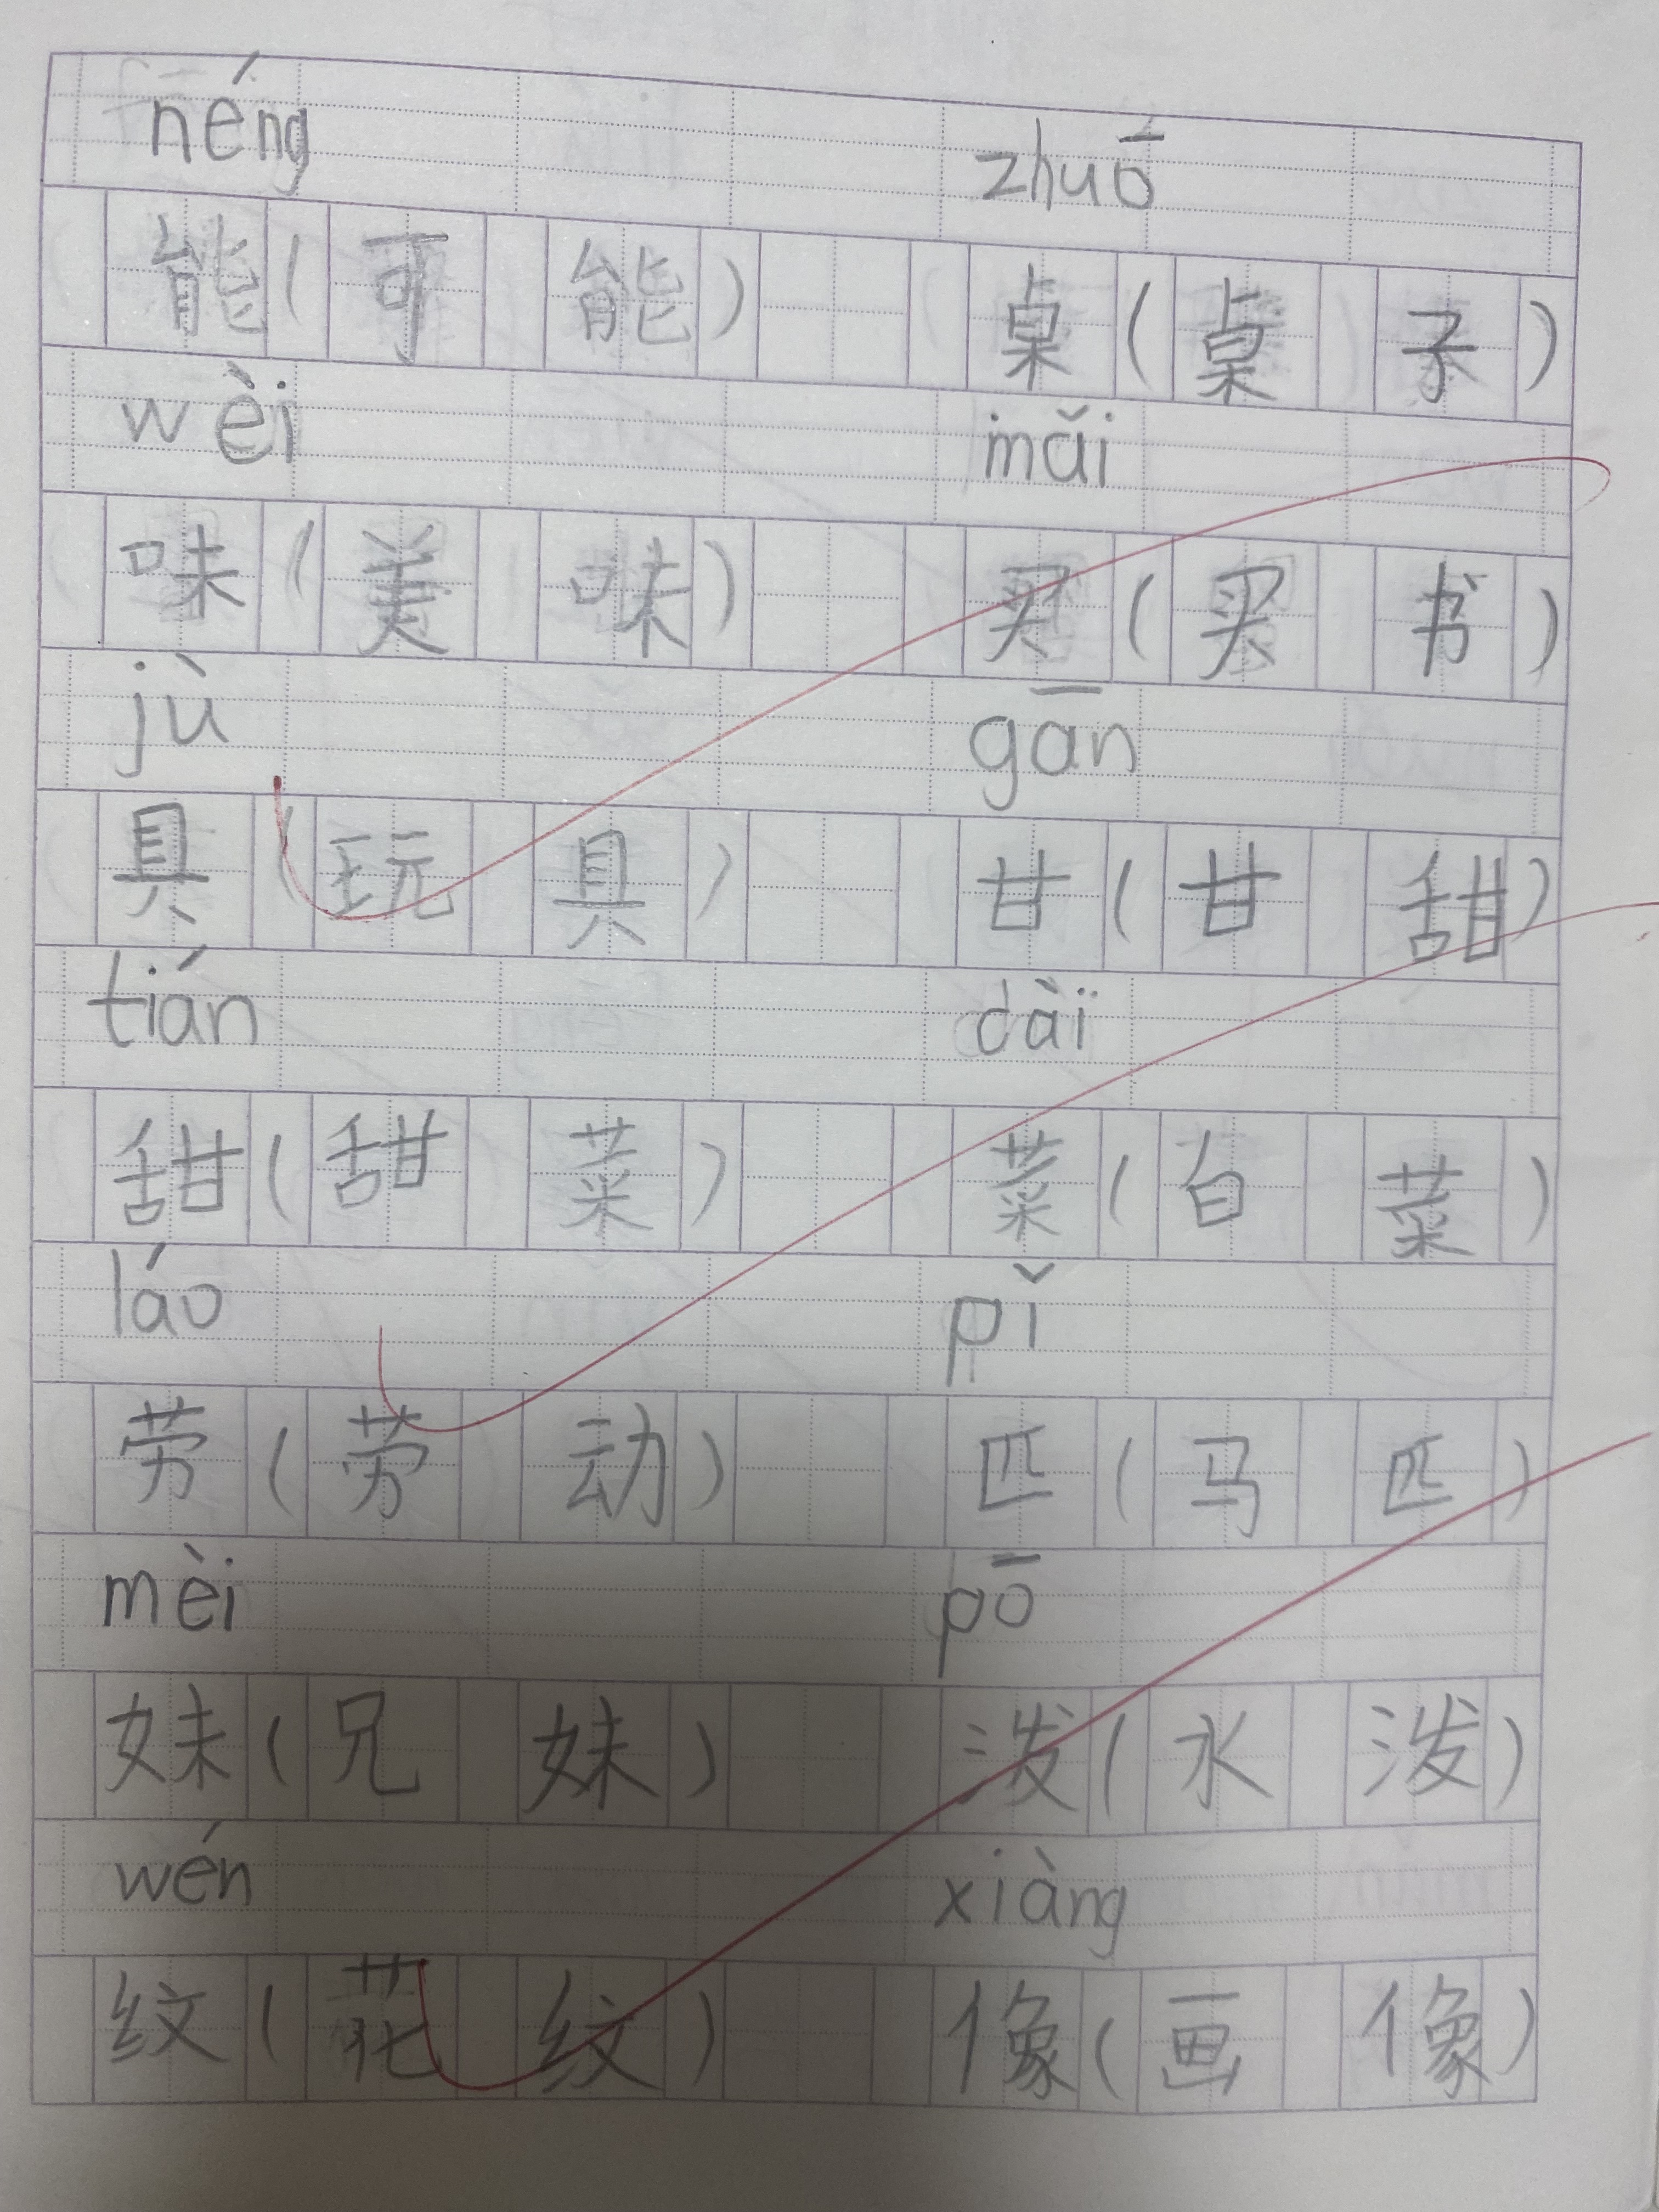 néng zhuō
能(可能) 桌(桌子)
wèi mǎi
味(美味) 买(买书)
jù gān
具(玩具) 甘(甘甜)
tián cài
甜(甜菜) 菜(白菜)
láo pǐ
劳(劳动) 匹(马匹)
mèi pō
妹(兄妹) 泼(水泼)
wén xiàng
纹(花纹) 像(画像)